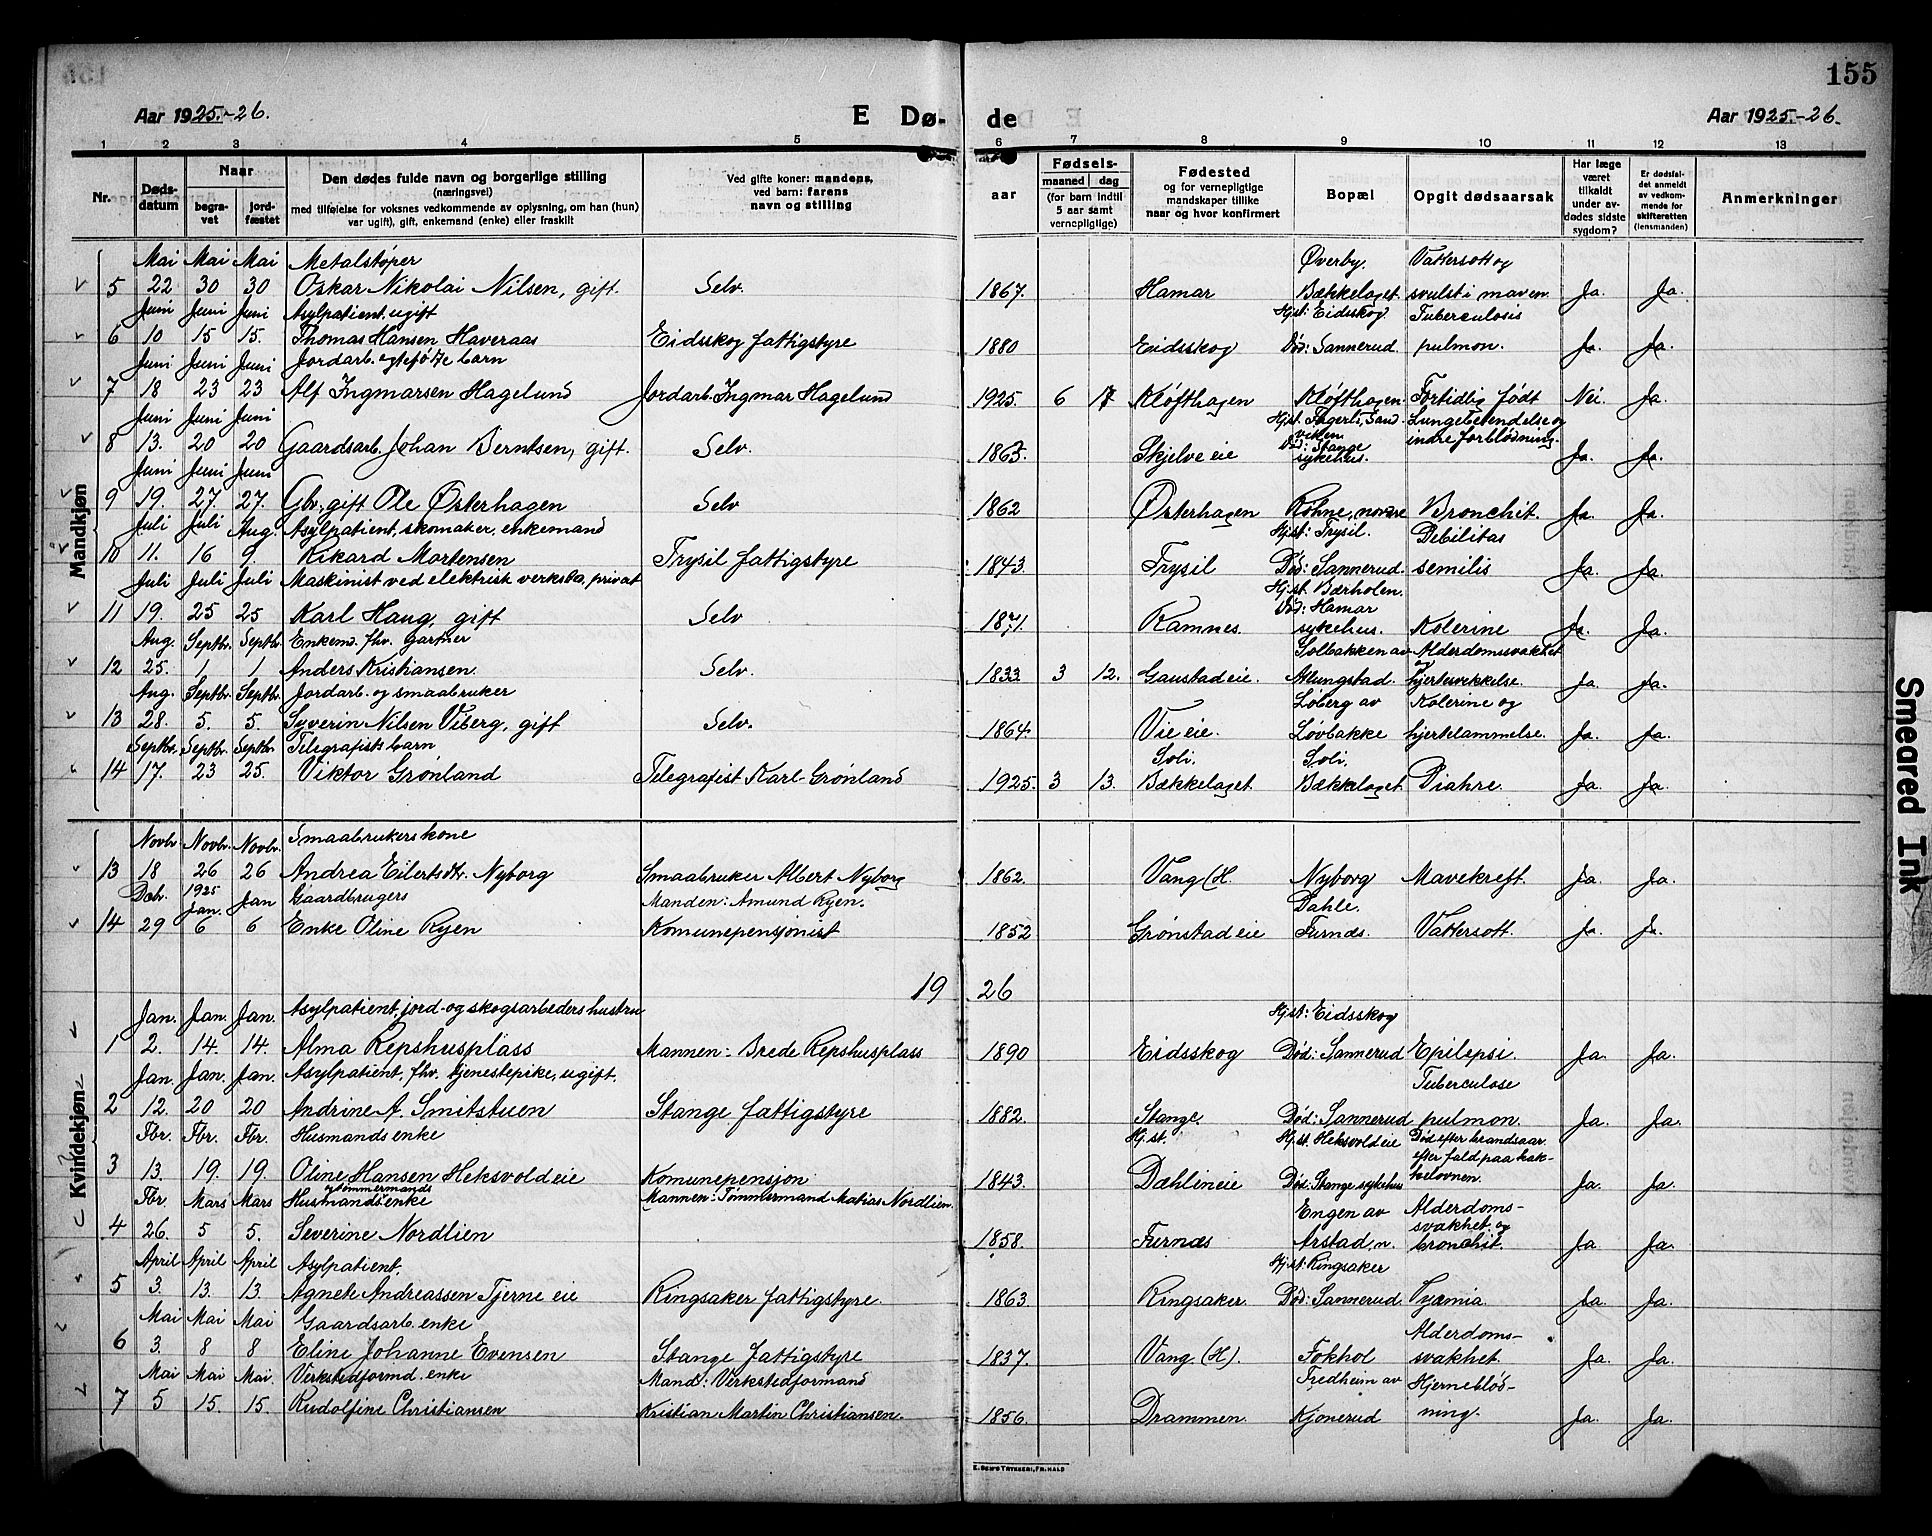 155
Aar 1925.-26.
E Dø-
de
Aar 1925.-26.
1 2 3 4 5 6 7 8 9 10 11 12 13
Nr.
Døds-
datum
Naar
begra-
vet
jord-
fæstet
Den dødes fulde navn og borgerlige stilling
(næringsvei)
med tilføielse for voksnes vedkommende av oplysning, om han (hun)
var ugift), gift, enkemand (enke) eller fraskilt
Ved gifte koner: mandens,
ved barn: farens
navn og stilling
aar
Fødsels-
maaned dag
(for barn indtil
5 aar samt
vernepligtige)
Fødested
og for vernepligtige
mandskaper tillike
naar og hvor konfirmert
Bopæl
Opgit dødsaarsak
Har læge
været
tilkaldt
under av-
dødes sidste
sygdom?
Er dødsfal-
det anmeldt
av vedkom-
mende for
skifteretten
(lensmanden)
Anmerkninger
Mandkjøn
Mai Mai Mai Metalstøper Øverby. Vattersott og
5 22 30 30 Oskar Nikolai Nilsen, gift. Selv. 1867. Hamar Bækkelaget. svulst i maven Ja. Ja.
Juni Juni Juni Asylpatient, ugift Hjst: Eidsskog. Tuberculosis
6 10 15 15. Thomas Hansen Haveraas Eidsskog fattigstyre 1880 Eidsskog Død: Sannerud. pulmon. Ja. Ja.
Juni Juni Juni Jordarb. egtefødte barn
7 18 23 23 Alf Ingmarsen Hagelund Jordarb. Ingmar Hagelund 1925. 6 17 Kløfthagen Kløfthagen. Fortidlig født Nei Ja.
Juni Juni Juni Hjst: Fagerli, Sand- Lungebetendelse og
8 13. 20 20 Gaardsarb. Johan Berntsen, gift. Selv. 1865. Skjelve eie viken. Død: Stange sykehus. indre forblødning. Ja. Ja.
Juni Juni Juni
9 19. 27. 27. Gbr. gift Ole Østerhagen Selv 1862 Østerhagen Rohne, nordre Bronchit. Ja. Ja.
Juli Juli Aug. Asylpatient, skomaker, enkemand Hjst: Trysil. Debilitas
10 11. 16 9. Rikard Mortensen Trysil fattigstyre 1843. Trysil Død: Sannerud. semilis Ja. Ja.
Juli Juli Juli Maskinist ved elektrisk verksta, privat Hjst. Bærholen.
11 19. 25 25 Karl Haug, gift Selv 1871. Ramnes. Død: Hamar sykehus. Kolerine Ja. Ja.
Aug. Septbr. Septbr. Enkem. fhv. gartner Solbakken av Alderdomssvakhet og
12 25. 1 1 Anders Kristiansen. Selv. 1833. 3 12. Gaustad eie. Atlungstad. hjertesvekkelse. Ja. Ja.
Aug. Septbr. Septbr. Jordarb. og smaabruker Loberg av Kolerine og
13 28. 5. 5. Syverin Nilsen Viberg, gift Selv. 1864. Vie eie. Løvbakke hjertelammelse. Ja. Ja.
Septbr. Septbr. Septbr. Telegrafists barn Soli. Soli.
14 17. 23 25. Viktor Grønland Telegrafist Karl Grønland 1925. 3 13. Bækkelaget. Bækkelaget Diahre. Ja. Ja.
Kvindekjøn
Novbr. Novbr. Novbr. Smaabrukerskone
13 18 26 26 Andrea Eilertsdtr. Nyborg Smaabruker Albert Nyborg 1862. Vang (H. Nyborg Mavekreft. Ja. Ja.
Decb. 1925 Jan. Jan Gaardbrugers Manden: Amund Ryen. Dahle.
14 29 6 6 Enke Oline Ryen Komunepensjonist 1852 Grønstad eie Furnes. Vattersott. Ja. Ja.
19 26
Jan. Jan. Jan. Asylpatient, jord- og skogsarbeders hustru Hjst: Eidsskog
1 2. 14. 14. Alma Repshusplass Mannen: Brede Repshusplass 1890 Eidsskog Død: Sannerud Epilepsi. Ja. Ja.
Jan. Jan. Jan. Asylpatient, fhv. tjenestepike, ugift. Tuberculose
2 12. 20 20 Andrine A. Smitstuen Stange fattigstyre 1882. Stange. Død: Sannerud pulmon. Ja. Ja.
Fbr. Fbr. Fbr. Husmands enke Hjst. Hjst. Heksvold eie Død efter brandsaar
3 13. 19. 19. Oline Hansen Heksvold eie Komunepensjon 1843. Dæhlin eie Død: Stange sykehus efter fald paa kak-kelovnen. Ja. Ja.
Fbr. Mars Mars Husmands og tømmermands enke Mannen: Tømmermand Matias Nordlien. Engen av Alderdoms-
4 26. 5 5. Severine Nordlien 1858. Furnæs Arstad, n. svakhet og bronchit. Ja. Ja.
April April April Asylpatient. Hjst: Ringsaker
5 3. 13. 13 Agnete Andreassen Tjerne eie Ringsaker fattigstyre. 1863 Ringsaker. Død: Sannerud Pyæmia. Ja. Ja.
Mai Mai Mai Gaardsarb. enke Alderdoms-
6 3. 8 8 Eline Johanne Evensen Stange fattigstyre 1837. Vang (H). Fokhol svakhet. Ja. Ja.
Mai Mai Mai. Verkstedformd. enke Mand: Verkstedformand Fredheim av Hjerneblød-
7 5 15. 15. Rudolfine Christiansen Kristian Martin Christiansen. 1856. Drammen. Kjonerud ning. Ja. Ja.
E. SEM'S TRYKKERI, FR.HALD
Smeared Ink